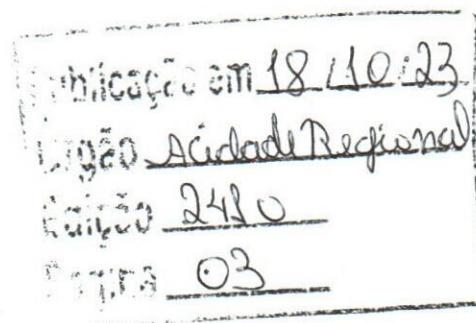 Publicação em 18/10/23
Órgão Acidade Regional
Edição 2410
Página 03